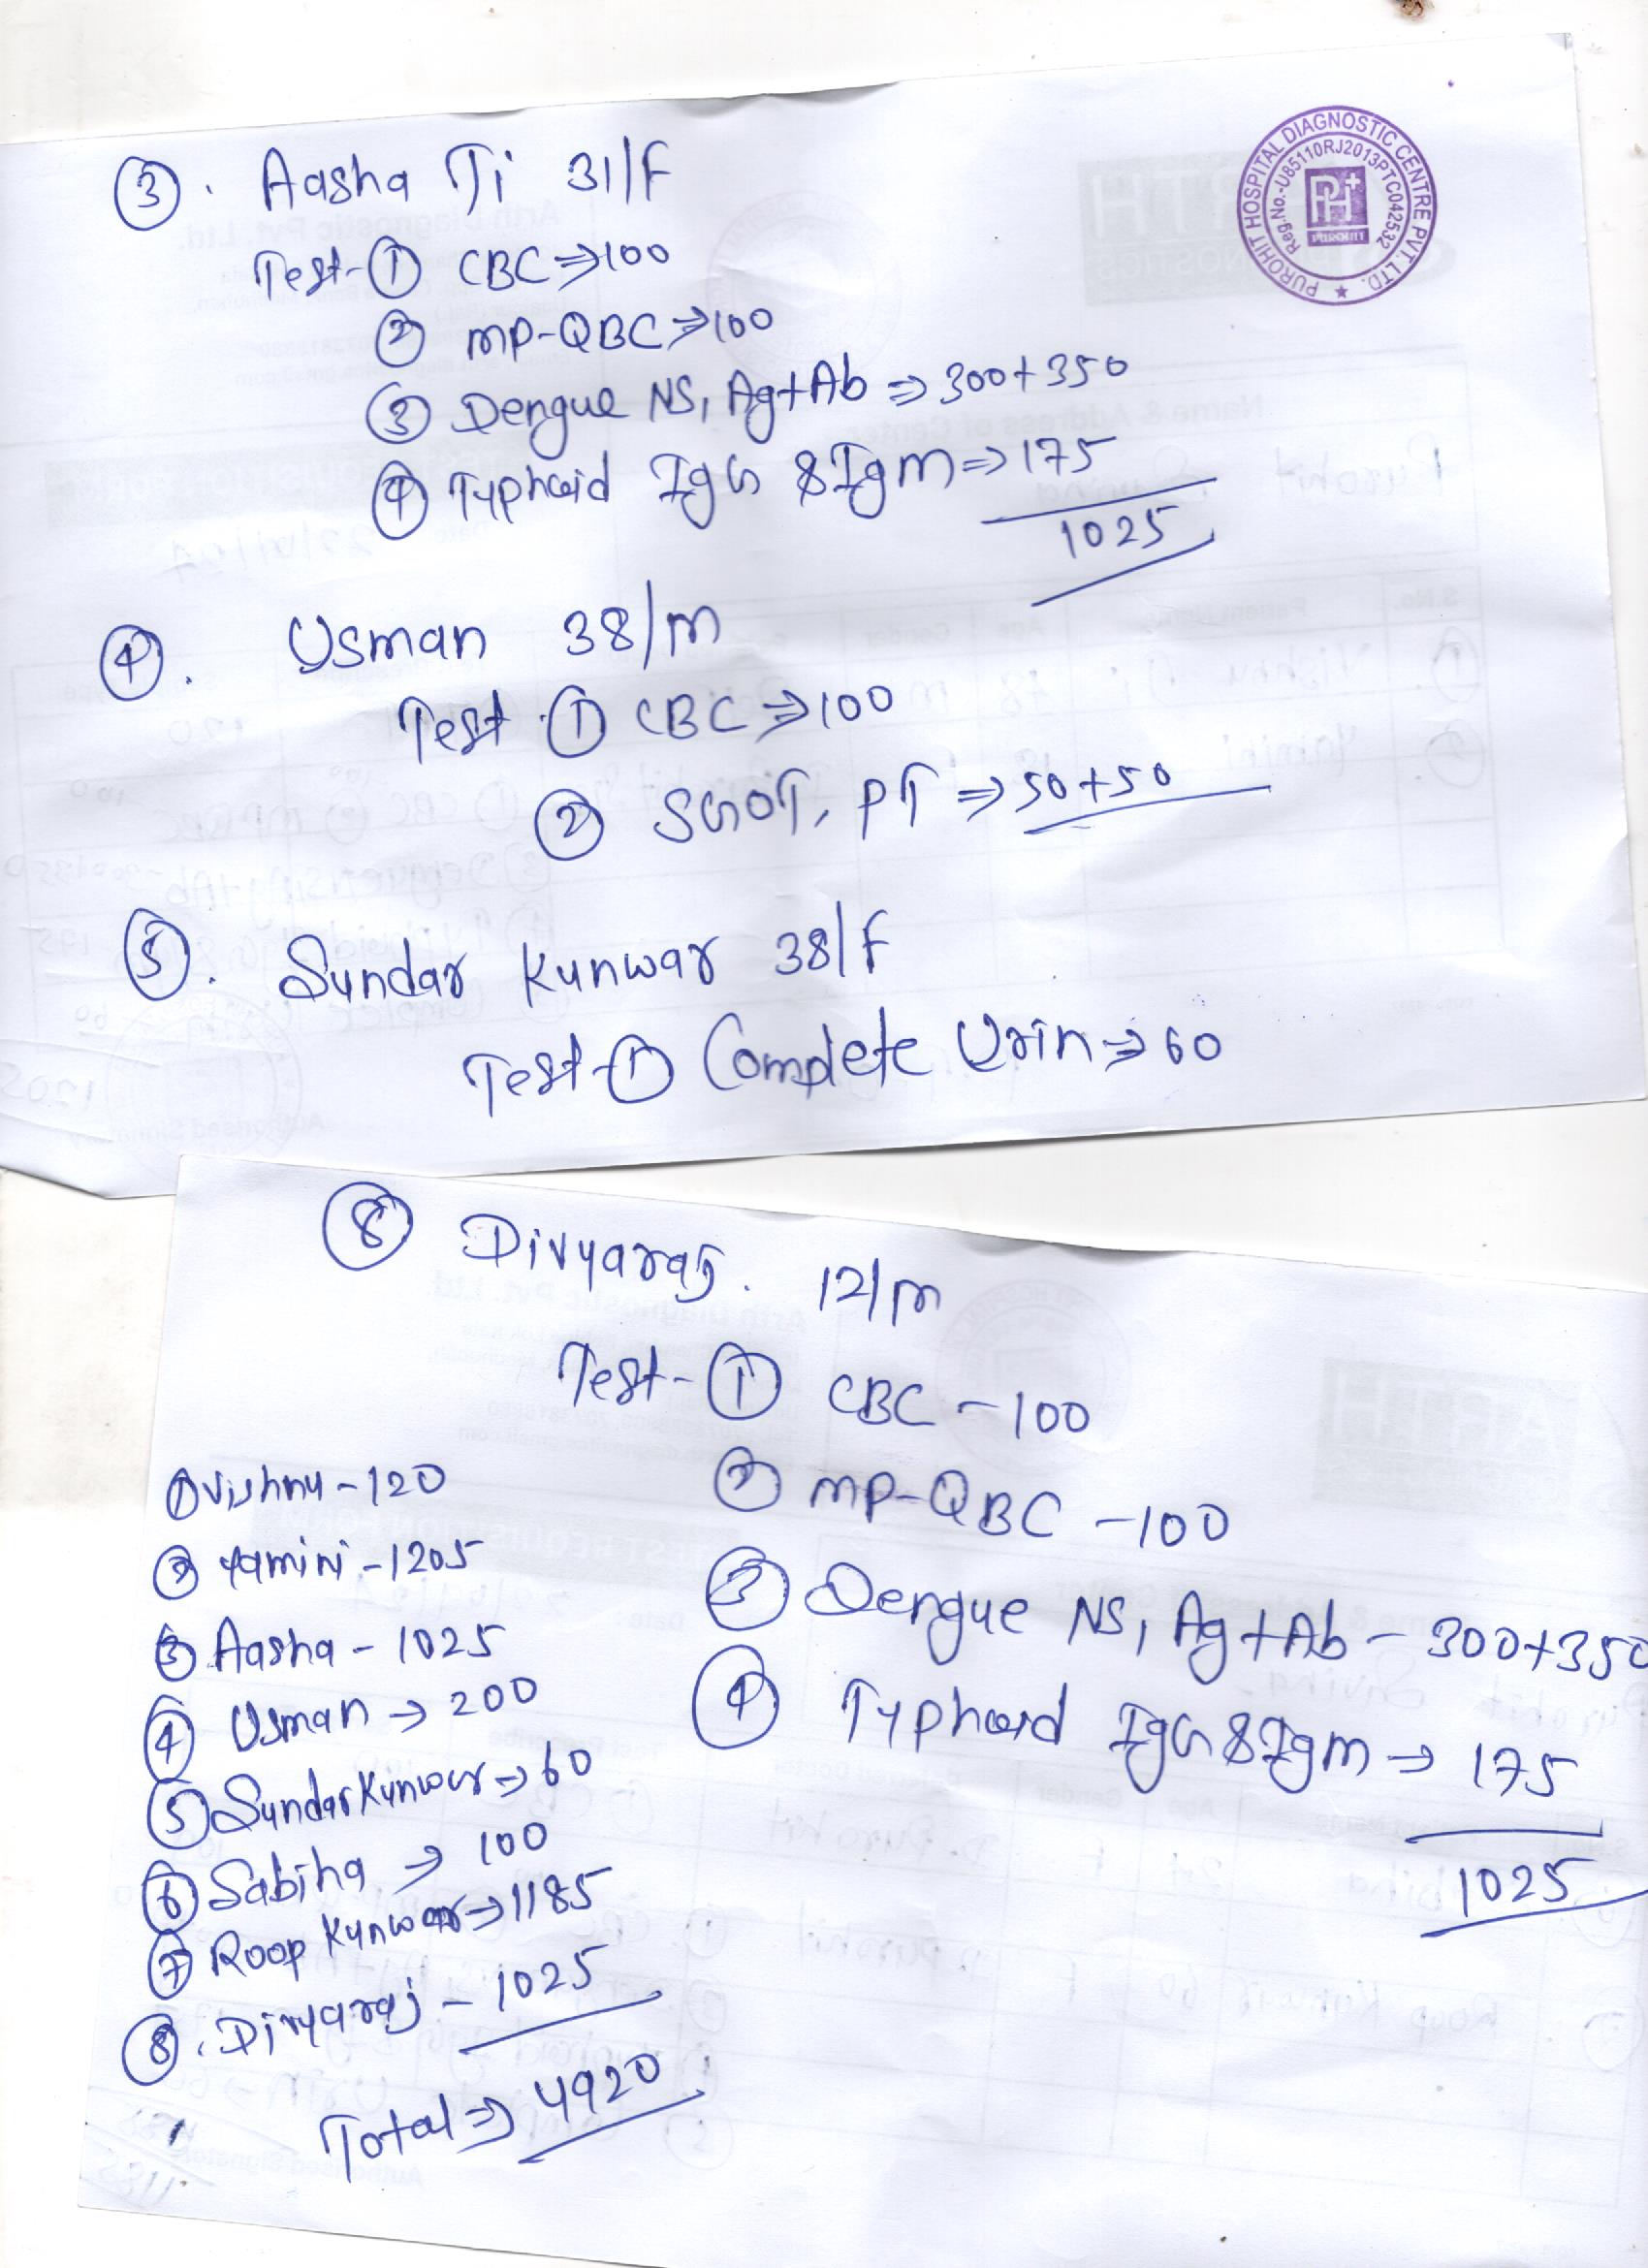 ③. Aasha Ji 31/F
PUROHIT HOSPITAL DIAGNOSTIC CENTRE PVT. LTD.
Reg.No.-U85110RJ2013PTC042532
PH+
PUROHIT
Test-① CBC⇒100
② MP-QBC⇒100
③ Dengue NS1 Ag+Ab ⇒ 300+350
④ Typhoid IgG &IgM⇒175
1025
④. Usman 38/M
Test ① CBC⇒100
② SGOT, PT ⇒ 50+50
⑤. Sundar Kunwar 38/F
Test-① Complete Urin⇒60
⑧ Divyaraj. 12/M
Test-① CBC - 100
② MP-QBC - 100
③ Dengue NS1 Ag+Ab - 300+350
④ Typhoid IgG&IgM → 175
1025
① Vishnu - 120
② Yamini - 1205
③ Aasha - 1025
④ Usman → 200
⑤ Sundar Kunwar → 60
⑥ Sabiha → 100
⑦ Roop Kunwar → 1185
⑧. Divyaraj - 1025
Total ⇒ 4920